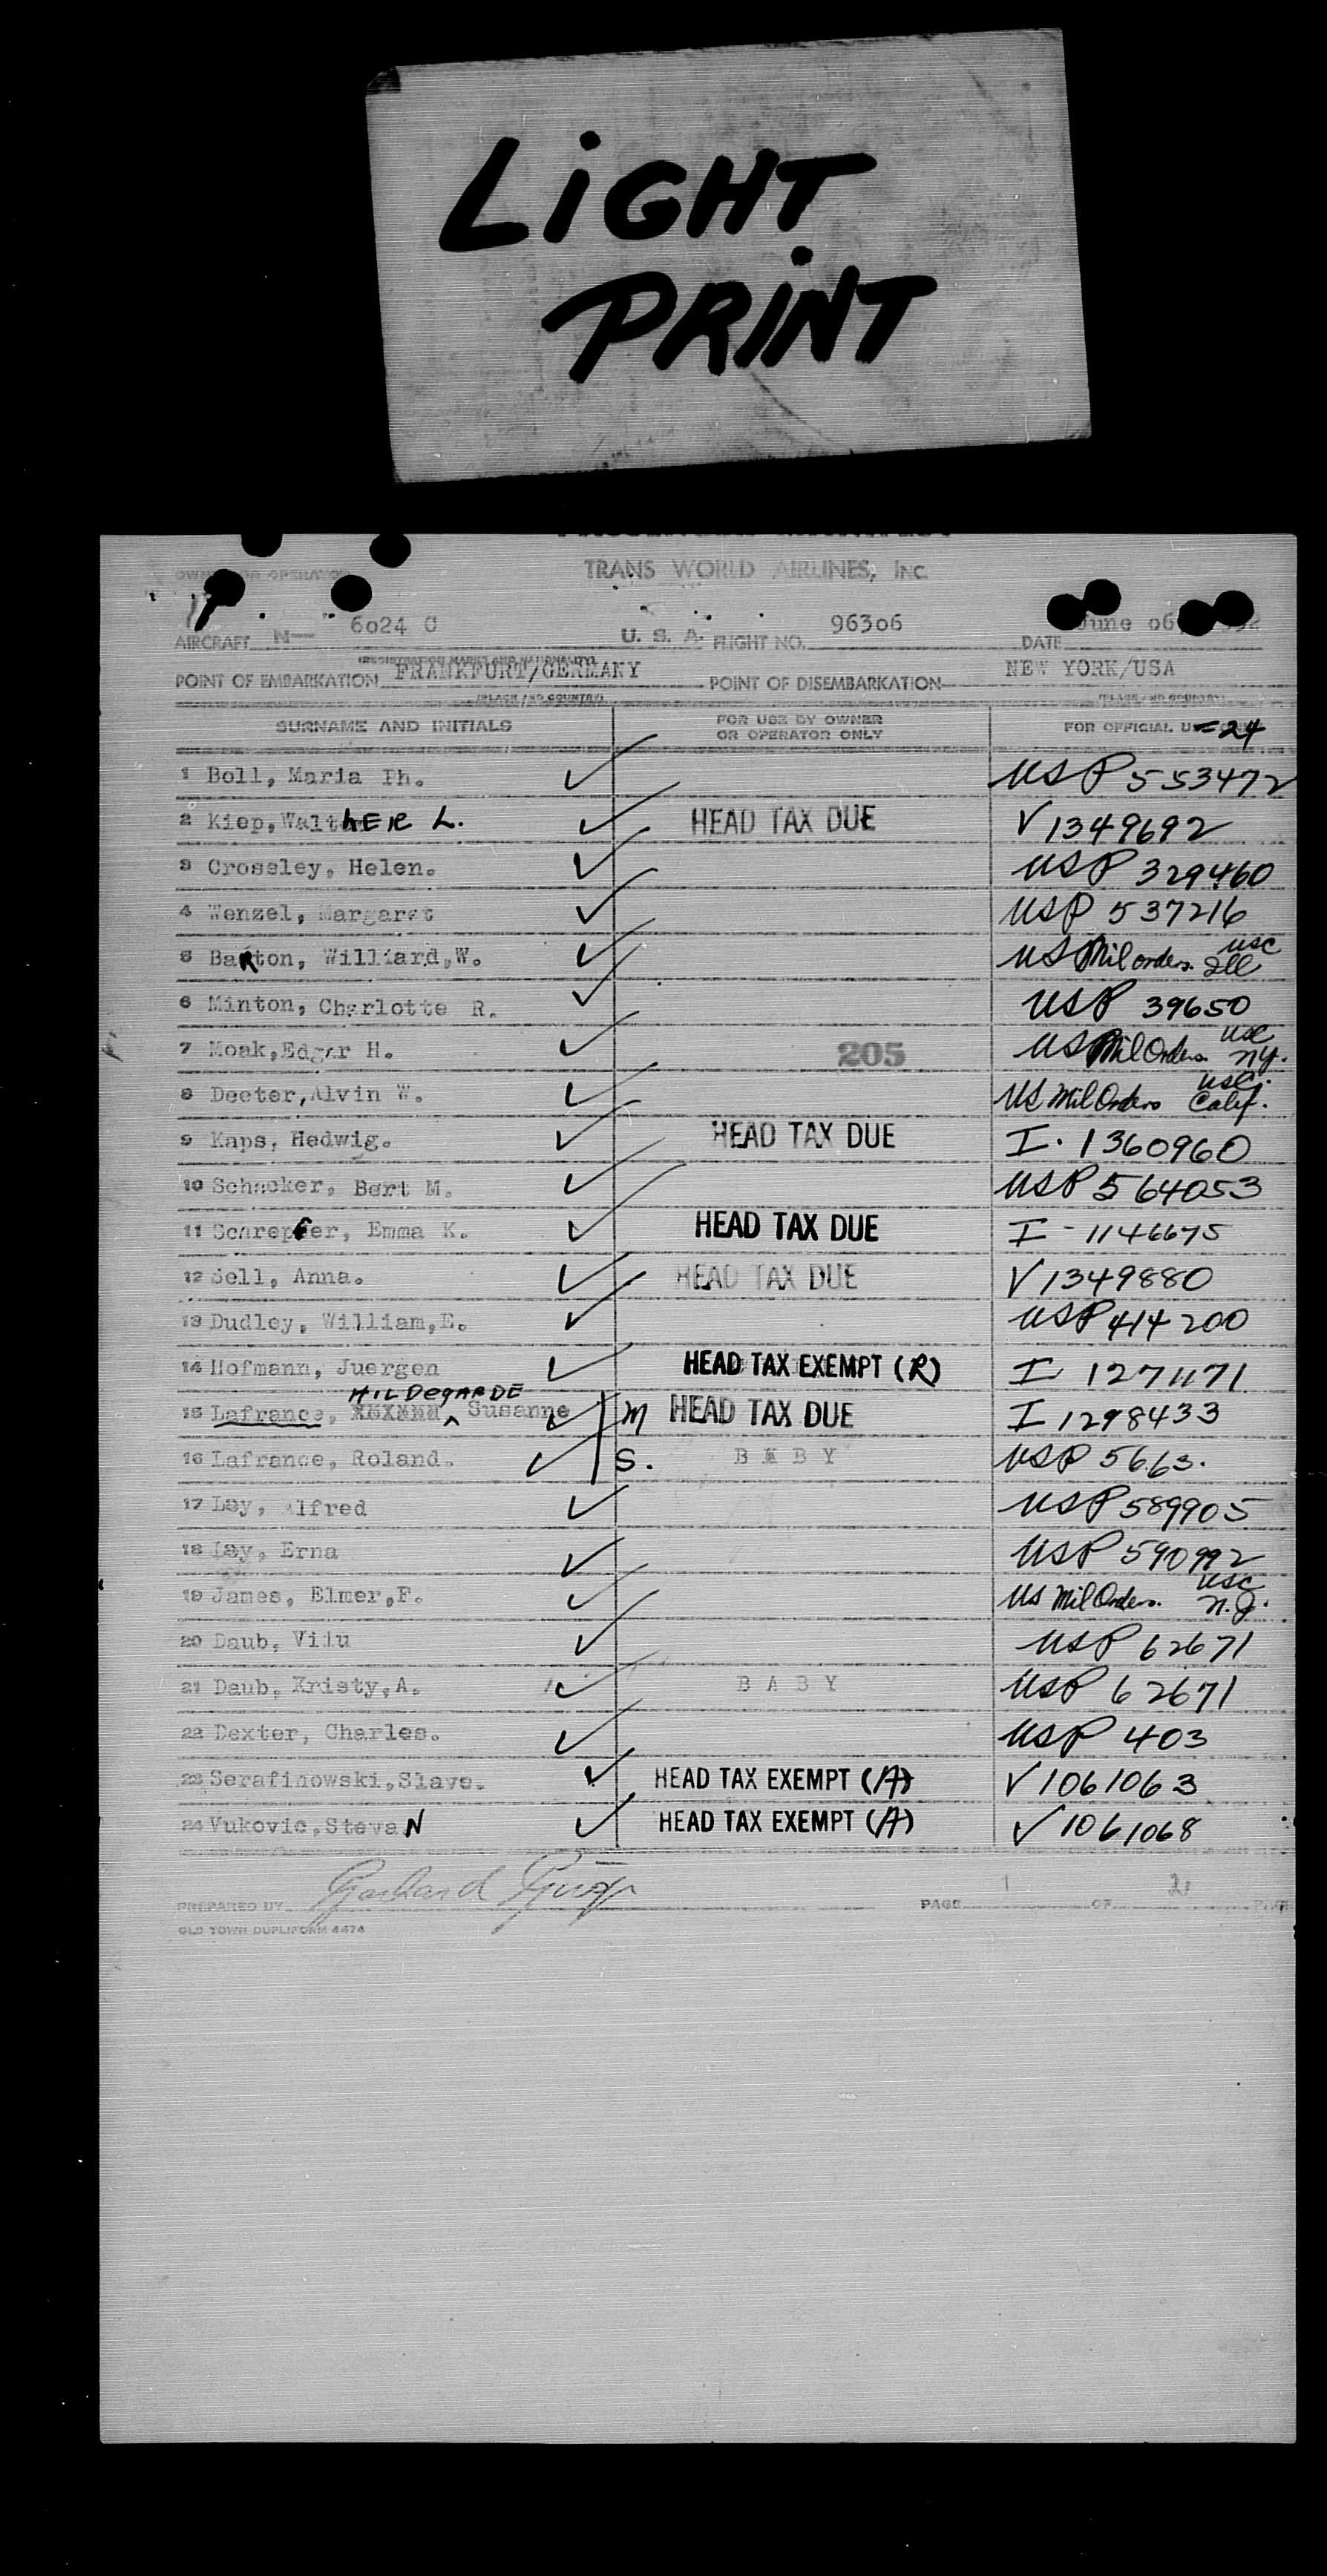 LIGHT
PRINT
TRANS WORLD AIRLINES, INC.
OWNER OR OPERATOR
AIRCRAFT N— 6024 C U. S. A. FLIGHT NO. 96306 DATE June 06,
(REGISTRATION MARKS AND NATIONALITY)
POINT OF EMBARKATION FRANKFURT/GERMANY POINT OF DISEMBARKATION NEW YORK/USA
(PLACE AND COUNTRY) (PLACE AND COUNTRY)
SURNAME AND INITIALS FOR USE BY OWNER OR OPERATOR ONLY FOR OFFICIAL =24
1 Boll, Maria Ph. ✓ USP 553472
2 Kiep, WaltHER L. ✓ HEAD TAX DUE V 1349692
3 Crossley, Helen. ✓ USP 329460
4 Wenzel, Margaret ✓ USP 537216
5 BaRton, Williard,W. ✓ US Mil orders. USC Ill
6 Minton, Charlotte R. ✓ USP 39650
7 Moak,Edgar H. ✓ 205 US Mil Orders. USC NY.
8 Deeter,Alvin W. ✓ US Mil Orders USC. Calif.
9 Kaps, Hedwig. ✓ HEAD TAX DUE I. 1360960
10 Schacker, Bert M. ✓ USP 564053
11 Schrepfer, Emma K. ✓ HEAD TAX DUE I - 1146675
12 Sell, Anna. ✓ HEAD TAX DUE V 1349880
13 Dudley, William,E. ✓ USP 414200
14 Hofmann, Juergen ✓ HEAD TAX EXEMPT (R) I 1271171
HILDEGARDE
15 Lafrance, Susanne ✓ M HEAD TAX DUE I 1298433
16 Lafrance, Roland. ✓ S. BABY USP 5663.
17 Lay, Alfred ✓ USP 589905
18 Lay, Erna ✓ USP 590992
19 James, Elmer,F. ✓ US Mil Orders. USC N.J.
20 Daub, ✓ USP 62671
21 Daub, Kristy,A. ✓ BABY USP 62671
22 Dexter, Charles. ✓ USP 403
23 Serafinowski,Slave. ✓ HEAD TAX EXEMPT (A) V 1061063
24 Vukovic,StevaN ✓ HEAD TAX EXEMPT (A) V 1061068
PREPARED BY PAGE 1 OF 2
OLD TOWN DUPLIFORM 4474